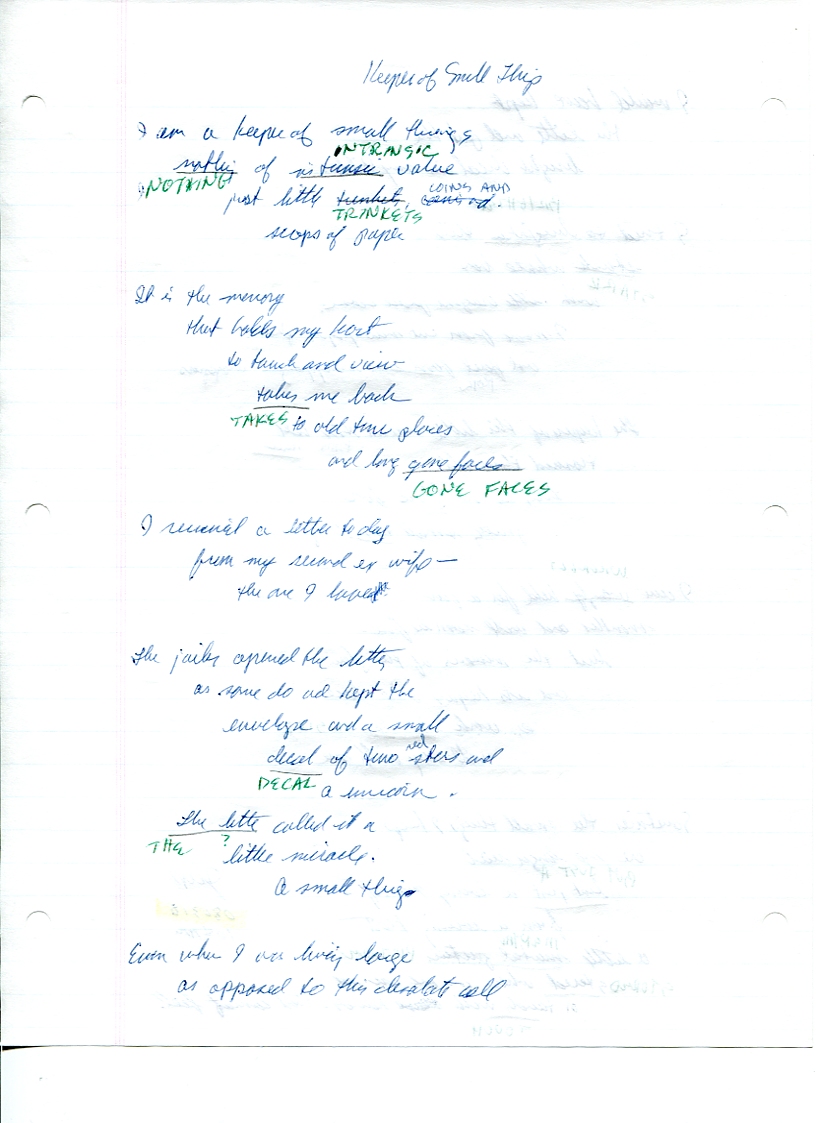 Keeper of Small Things
I am a keeper of small things
INTRANSIC
nothing of intransic value
NOTHING
COINS AND
just little trinkets, coins and.
TRINKETS
scraps of paper
It is the memory
that holds my heart
to touch and view
takes me back
TAKES to old time places
and long gone faces
GONE FACES
I received a letter today
from my second ex wife—
the one I loved
The jailer opened the letter
as some do and kept the
envelope and a small
red
decal of two stars and
DECAL a unicorn.
The letter called it a
THE ? little miracle.
A small thing
Even when I was living large
as opposed to this desolate cell